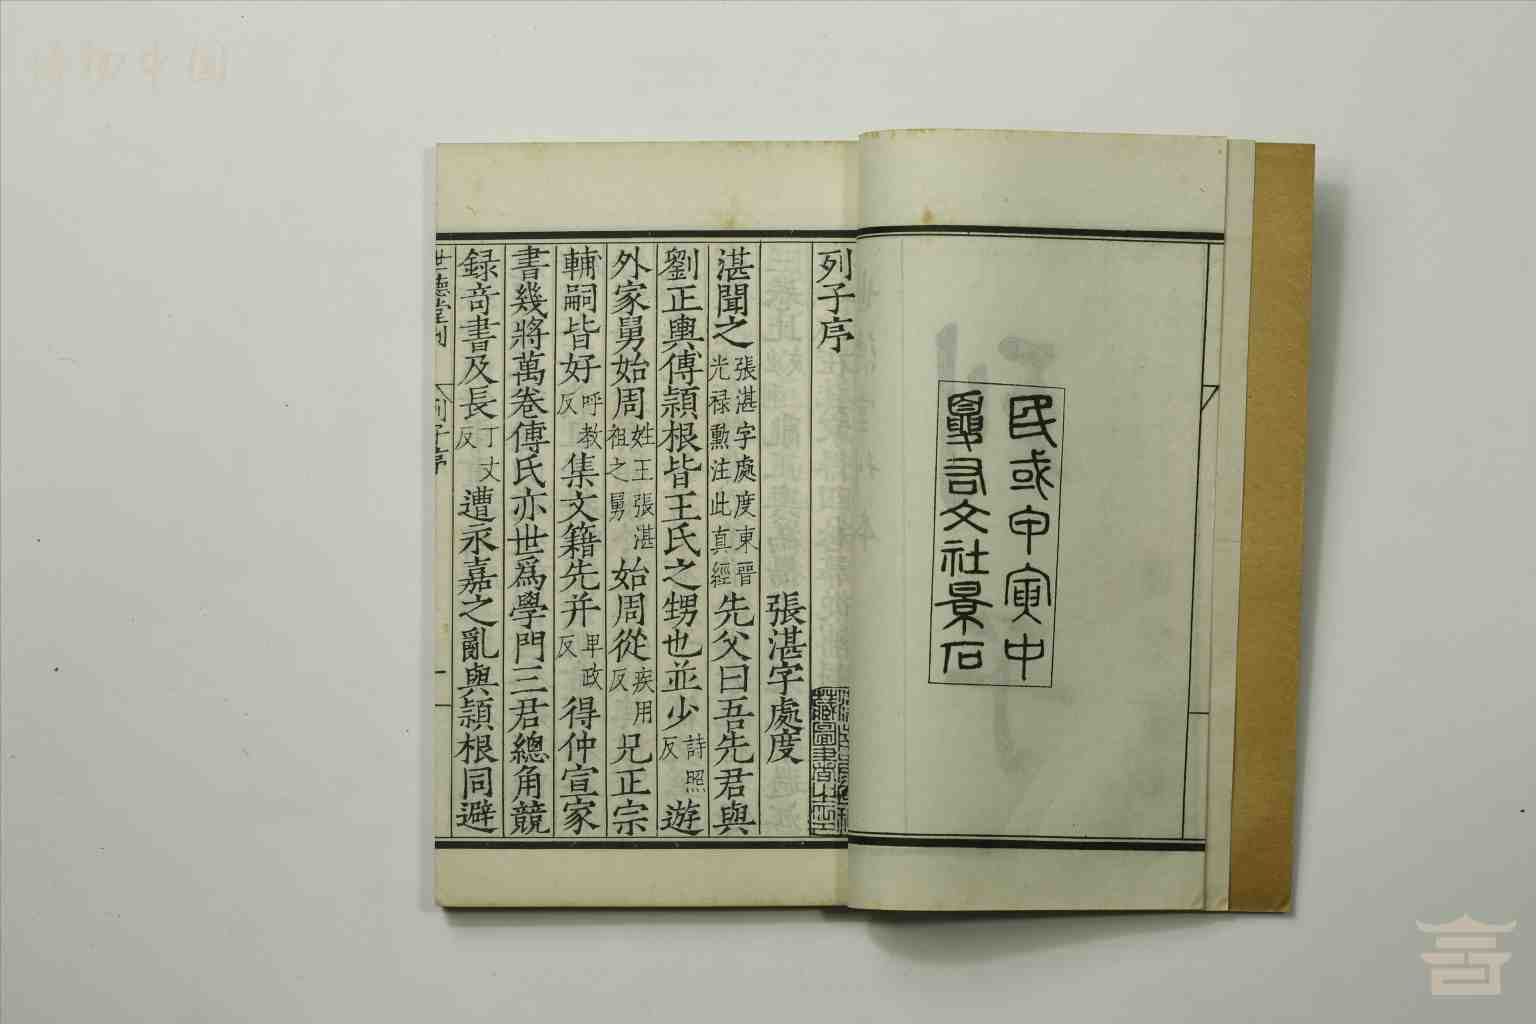 民或甲寅中
夏右文社景石
列子序
張湛字處度
湛聞之張湛字處度東晉光禄勳注此真經先父曰吾先君與
劉正輿傅穎根皆王氏之甥也並少詩照反遊
外家舅始周姓王張湛祖之舅始周從疾用反兄正宗
輔嗣皆好呼教反集文籍先并卑政反得仲宣家
書幾將萬卷傅氏亦世爲學門三君總角競
録奇書及長丁丈反遭永嘉之亂與穎根同避
世德堂刊 列子序